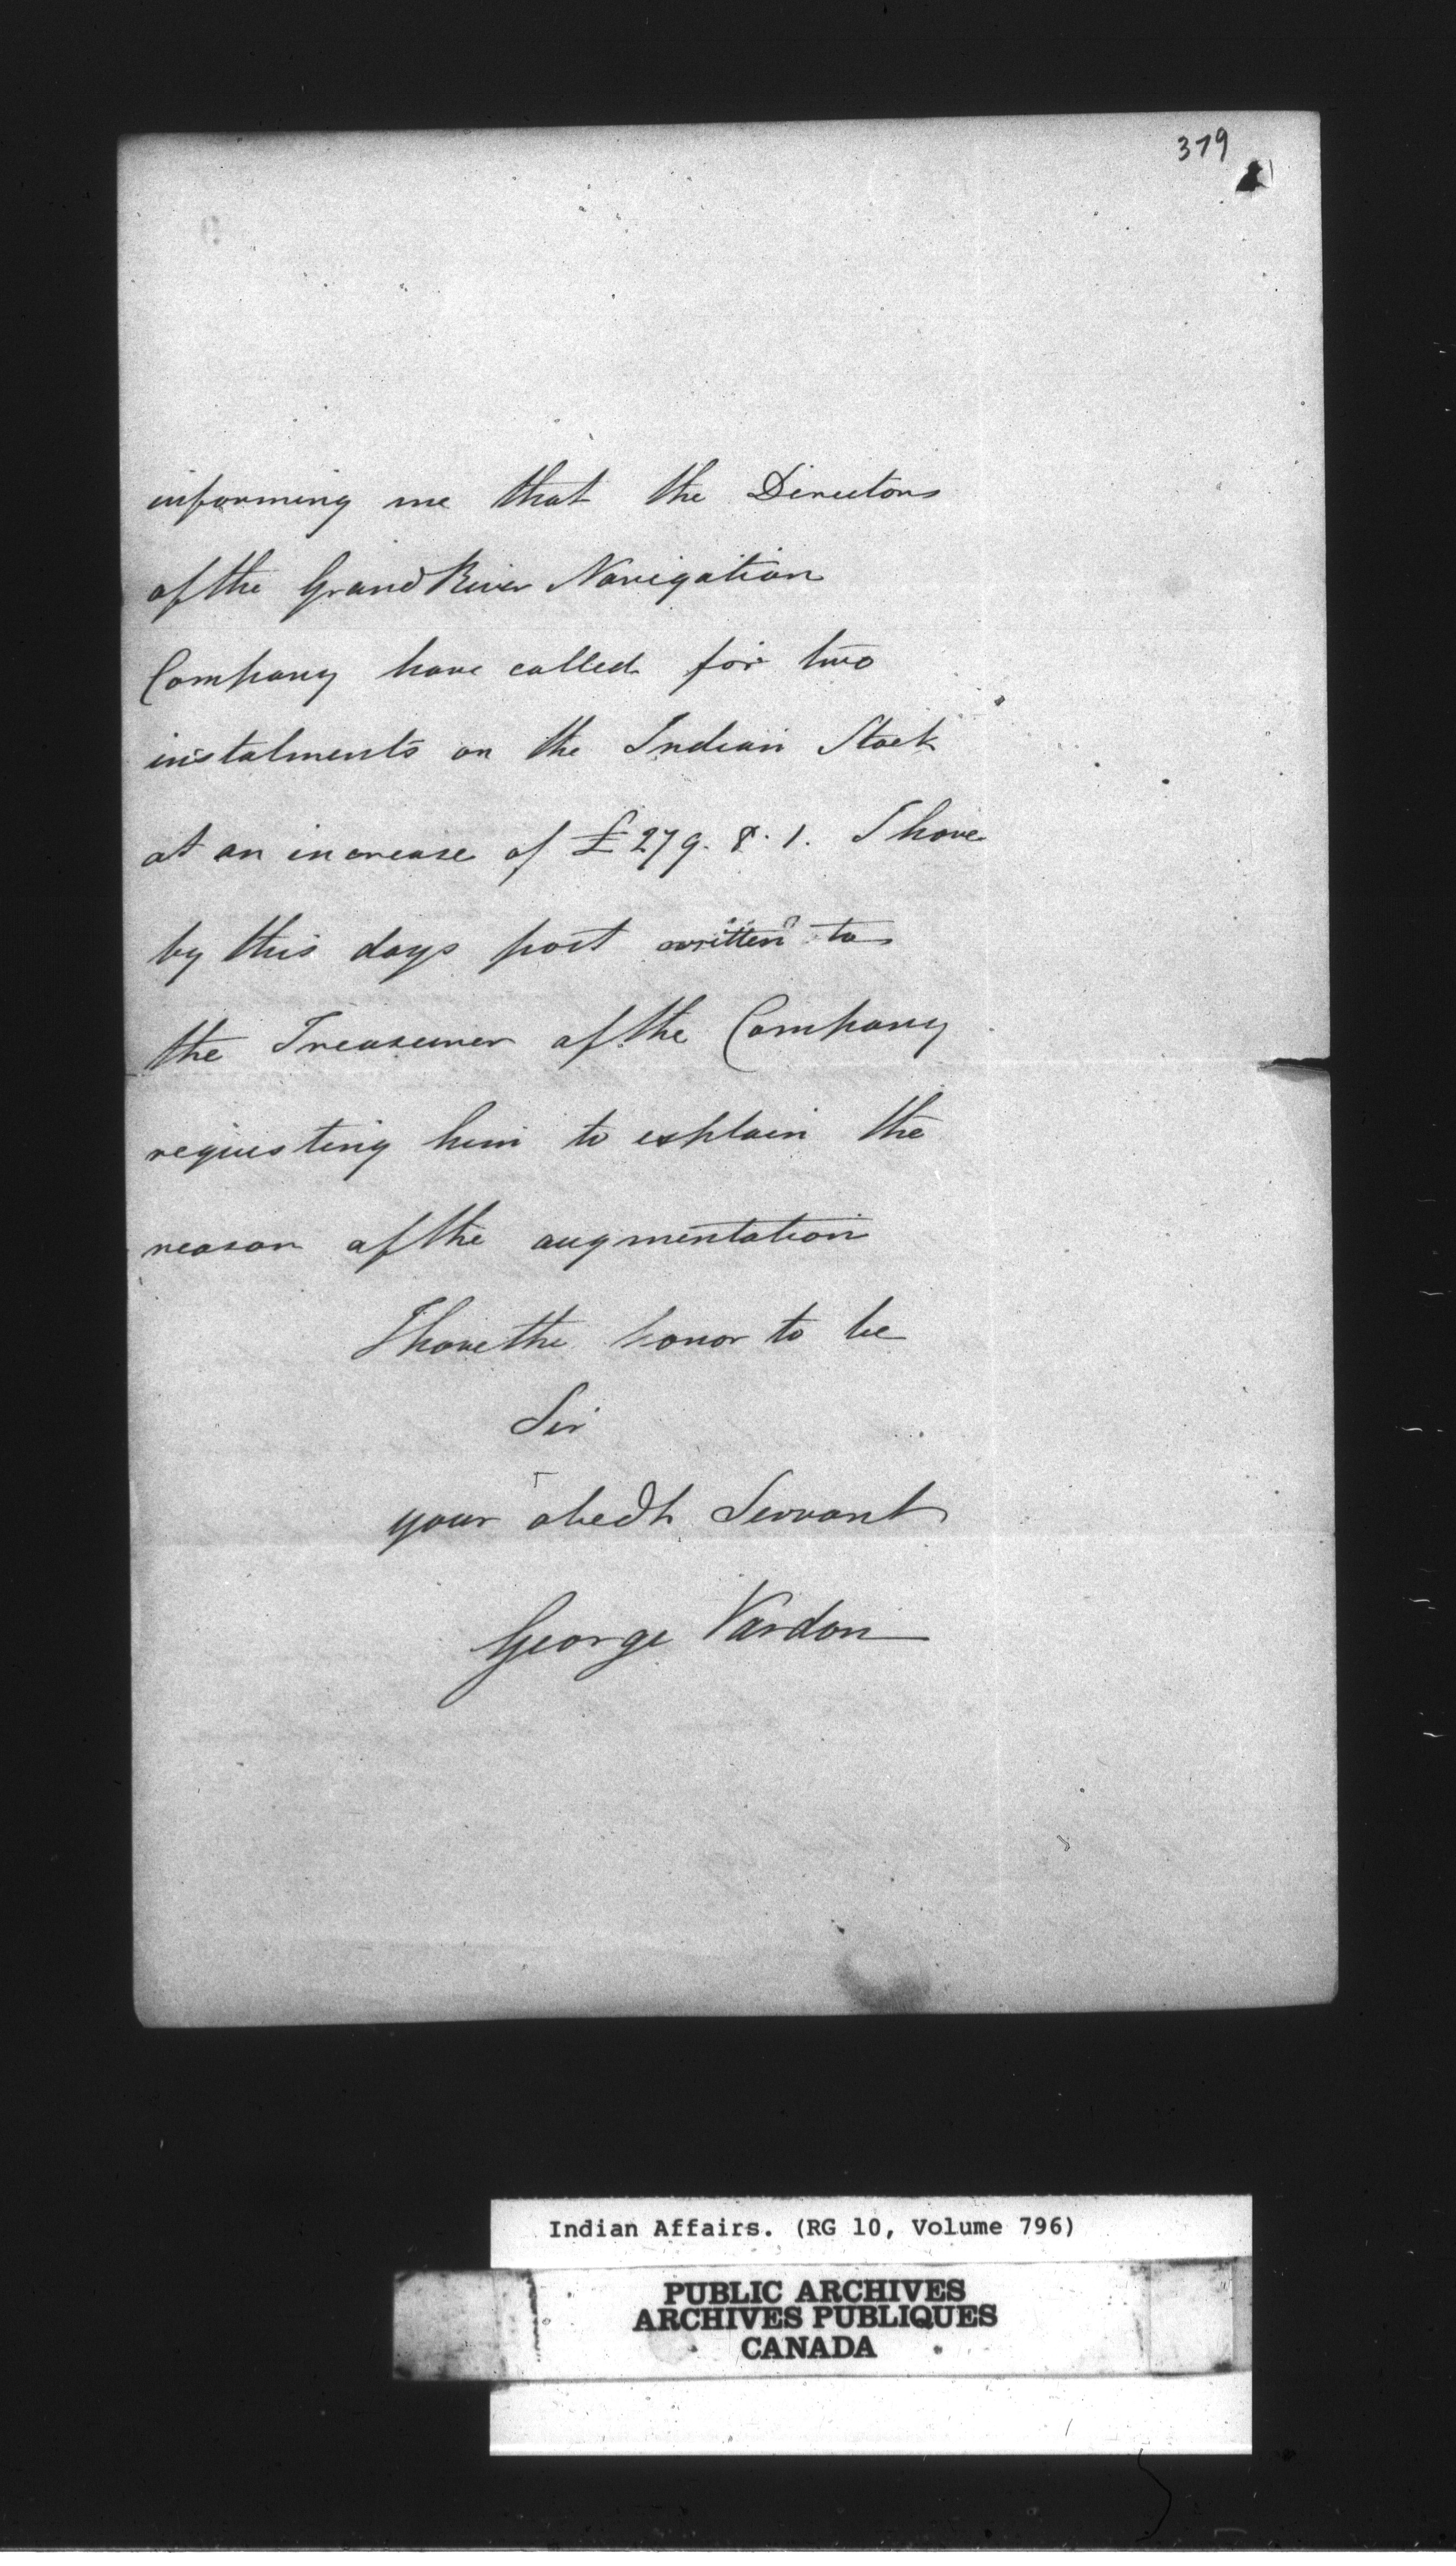 379
informing me that the Directors
of the Grand River Navigation
Company have called for two
instalments on the Indian Stock
at an increase of £279. 8. 1. I have
by this days post written to
the Treasurer of the Company
requesting him to explain the
reason of the augmentation
I have the honor to be
Sir
your obedt Servant
George Vardon
Indian Affairs. (RG 10, Volume 796)
PUBLIC ARCHIVES
ARCHIVES PUBLIQUES
CANADA